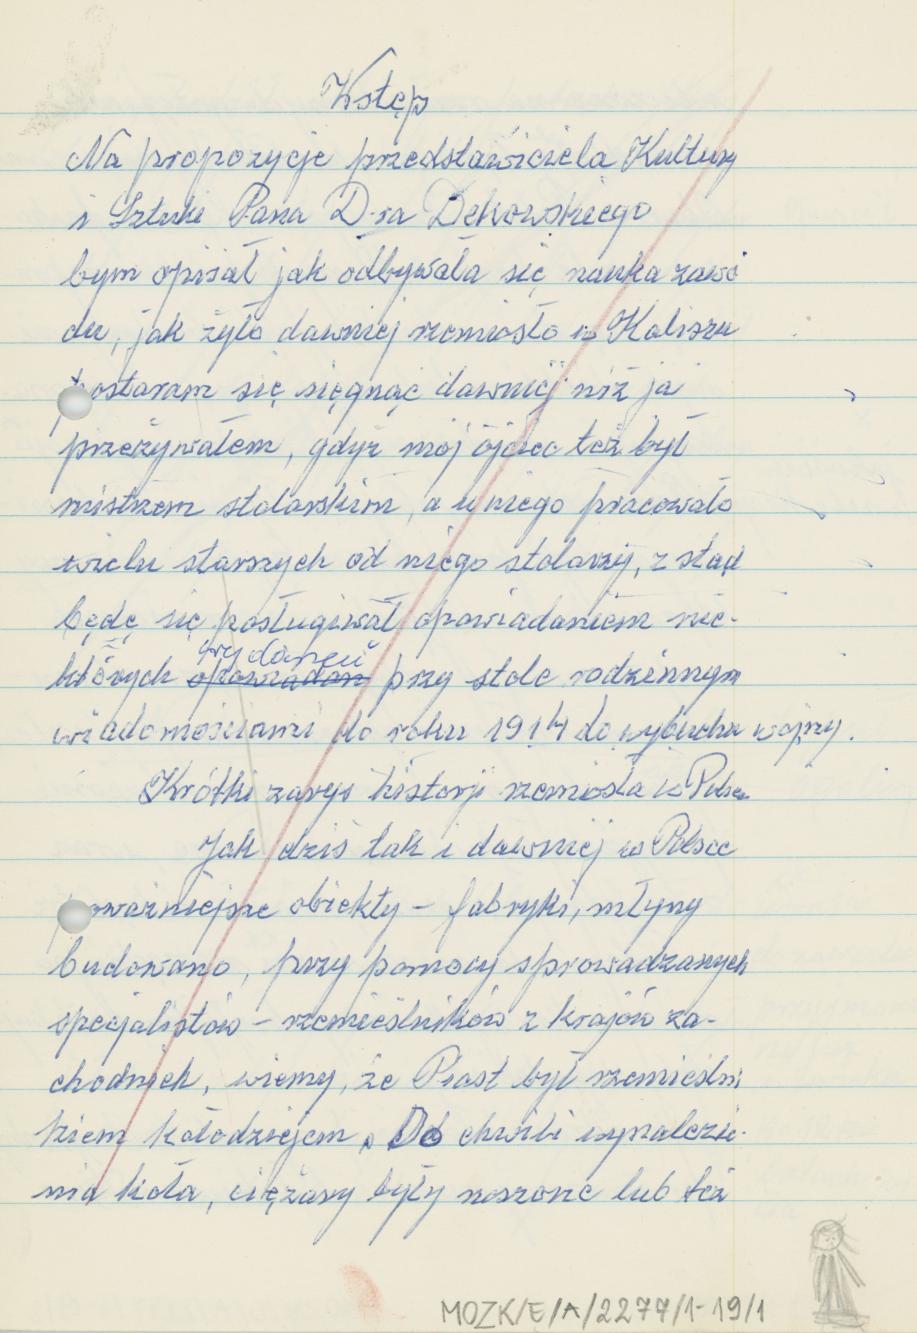 Wstęp
Na propozycje przedstawiciela Kultury
i Sztuki Pana D-ra Dekowskiego
bym opisał jak odbywała się nauka zawo
du, jak żyło dawniej rzemiosło w Kaliszu
postaram się sięgnąć dawniej niż ja
przeżywałem, gdyż mój ojciec też był
mistrzem stolarskim, a u niego pracowało
wielu starszych od niego stolarzy, z stąd
będę się posługiwał opowiadaniem nie-
których opowiadań przy stole rodzinnym
wiadomościami do roku 1914 do wybuchu wojny.
Krótki zarys historji rzemiosła w Polsce
Jak dziś tak i dawniej w Polsce
poważniejsze obiekty - fabryki, młyny
budowano, przy pomocy sprowadzanych
specjalistów - rzemieślników z krajów za-
chodnich, wiemy, że Piast był rzemieślni
kiem kołodziejem, Do chwili wynalezie-
nia koła, ciężary były noszone lub też
MOZK/E/A/2277/1-19/1